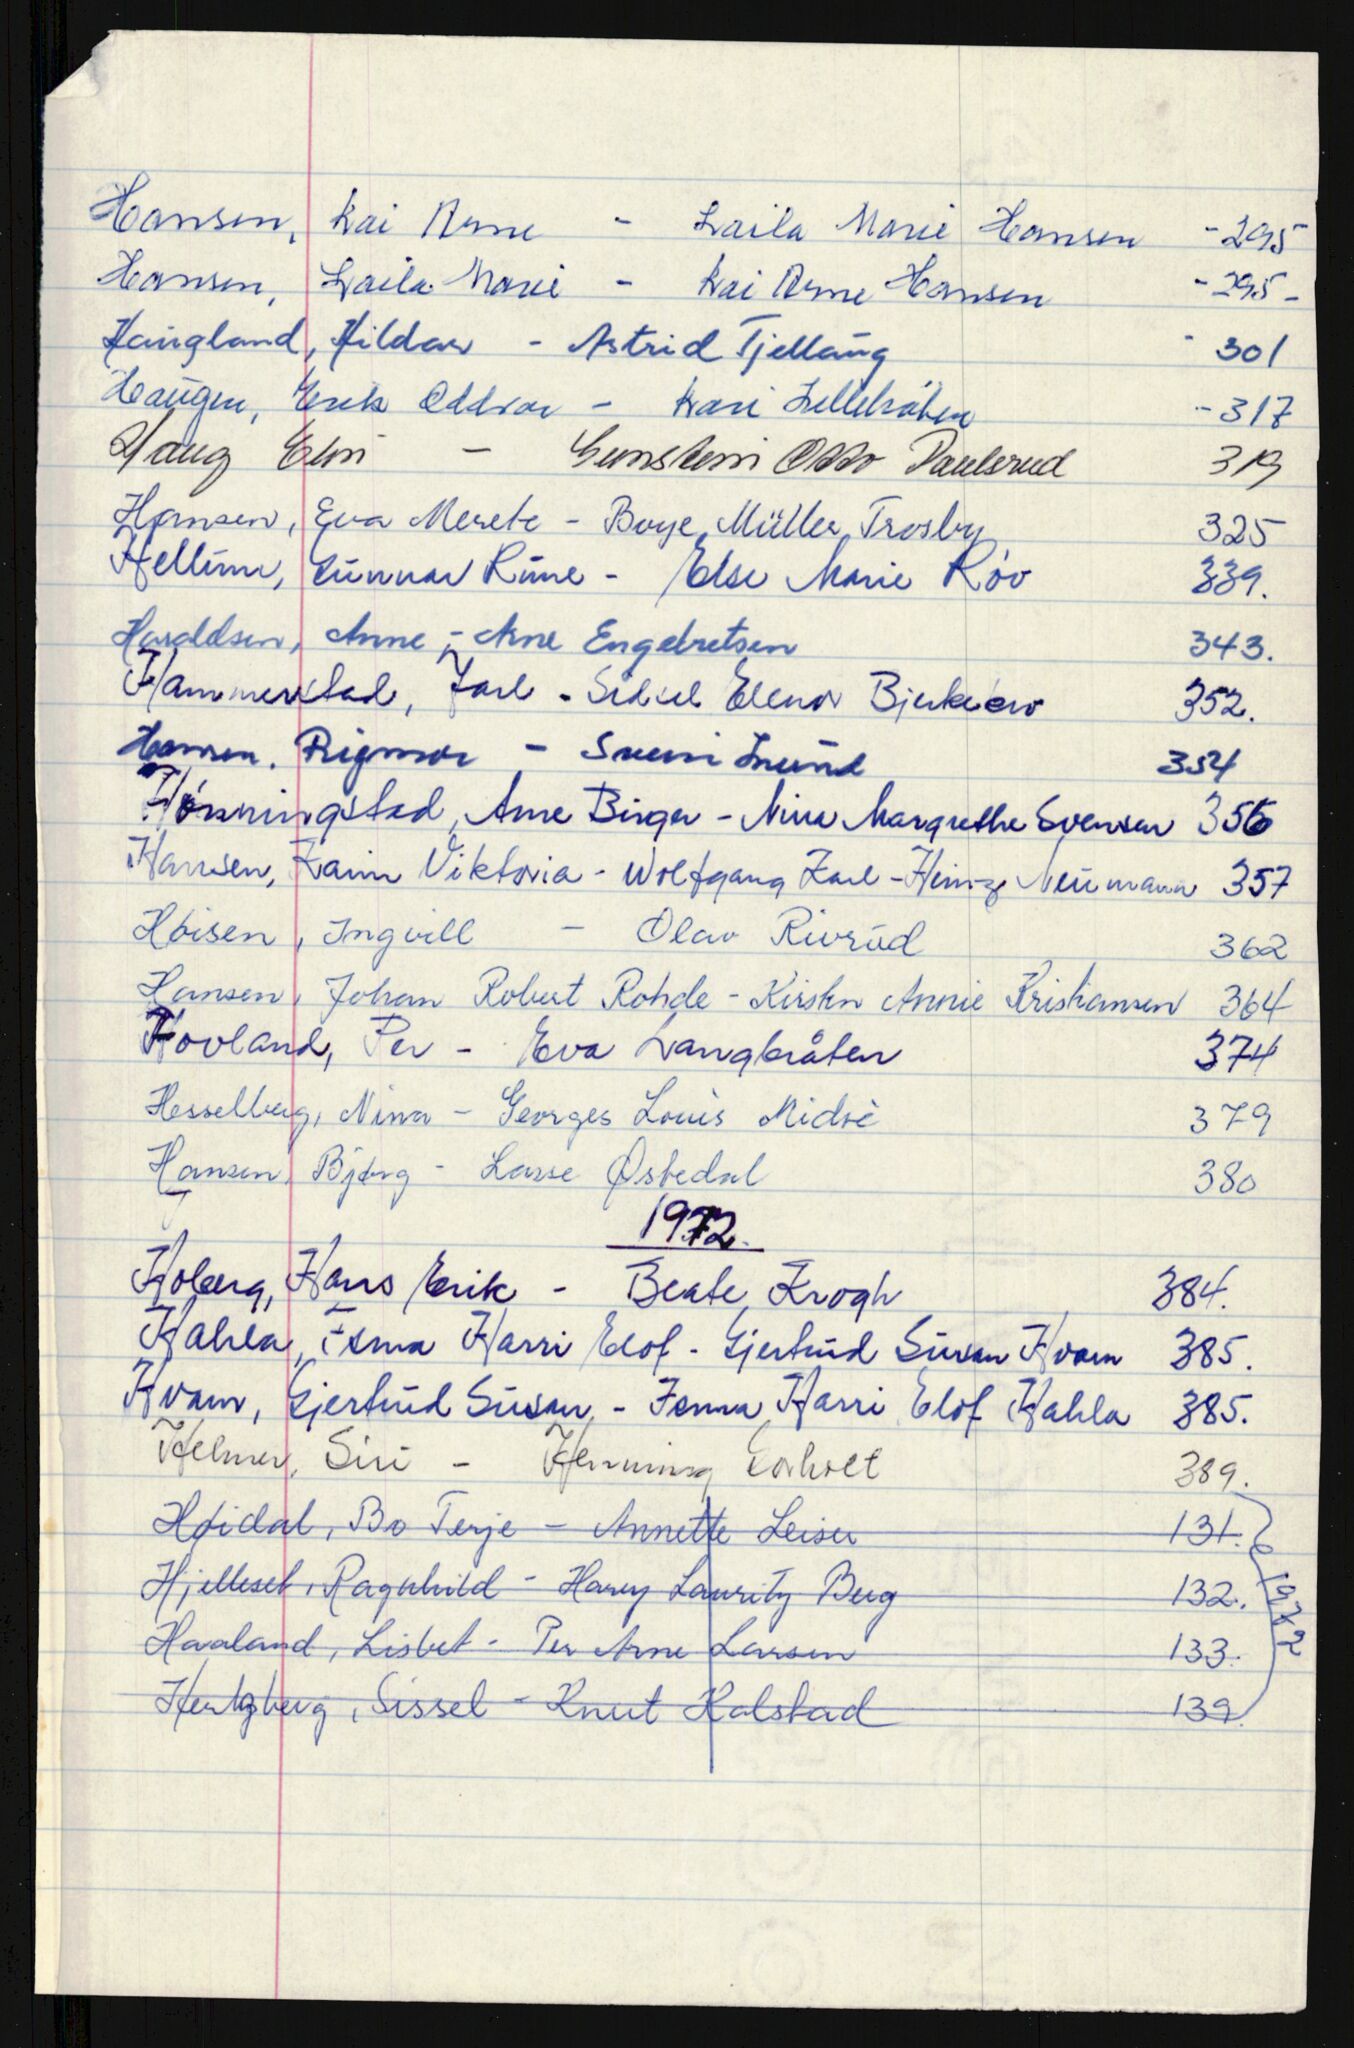 Hansen, Kai Arne - Laila Marie Hansen - 295
Hansen, Laila Marie - Kai Arne Hansen - 295 -
Haugland, Hildar - Astrid Tjellaug - 301
Haugen, Erik Oddvar - Kari Lillebråten - 317
Haug Elin - Gunstein Otto Paulsrud 319
Hansen, Eva Merete - Boye Müller Trosby 325
Hellum, Gunnar Rune - Else Marie Røv 339.
Haraldsen, Anne - Arne Engebretsen 343.
Hammerstad, Jarl - Sidsel Elenor Bjerke 352.
Hansen, Rigmor - Svein Lund 354
Hønningstad, Arne Birger - Nina Margrethe Svensen 356
Hansen, Karin Viktoria - Wolfgang Karl-Heinz Neumann 357
Høisen, Ingvill - Olav Rivrud 362
Hansen, Johan Robert Rohde - Kirsten Annie Kristiansen 364
Hovland, Per - Eva Langbråten 374
Hesselberg, Nina - Georges Louis Midré 379
Hansen, Bjørg - Lasse Østedal 380
1972.
Hoberg, Hans Erik - Beate Krogh 384.
Hahla, Jorma Harri Elof - Gjertrud Susan Hvam 385.
Hvam, Gjertrud Susan - Jorma Harri Elof Hahla 385.
Helmer, Siri - Henning 389.
Høidal, Bo Terje - Annette Leiser 131.
Hjelleset, Ragnhild - Harry Lauritz Berg 132.
Haaland, Lisbet - Per Arne Larsen 133.
Hertzberg, Sissel - Knut Halstad 139.
1972